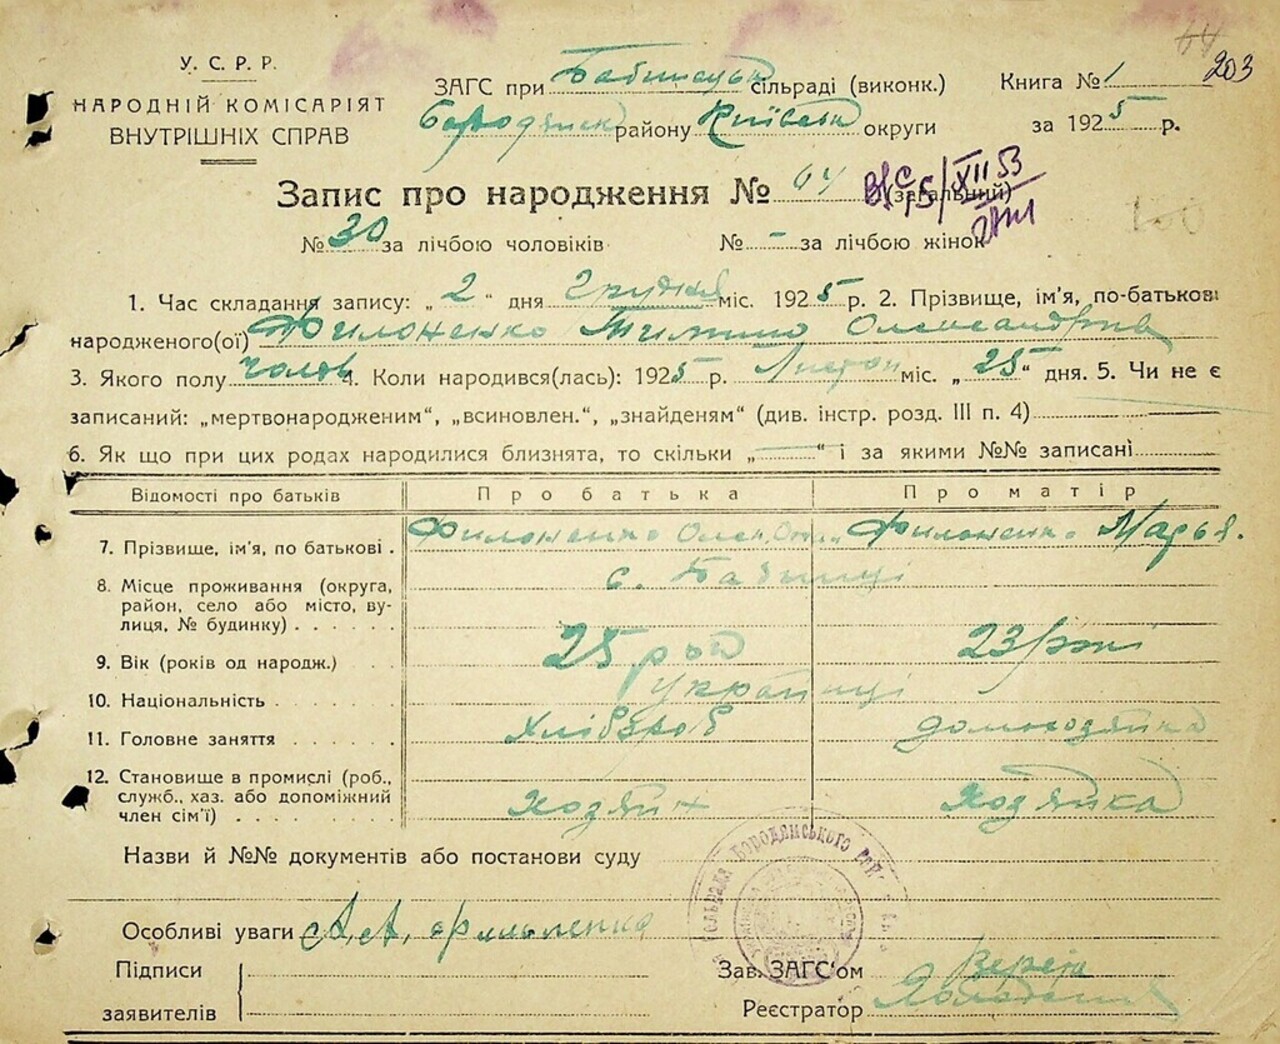 64 203
У. С. Р. Р.
НАРОДНІЙ КОМІСАРІЯТ
ВНУТРІШНІХ СПРАВ
ЗАГС при Бабинецьк сільраді (виконк.)
Книга № 1
Бородянск району Київськ округи
за 1925 р.
Запис про народження № 64 (загальний)
5/XII 53
№ 30 за лічбою чоловіків № - за лічбою жінок
1. Час складання запису: „ 2 “ дня Грудня міс. 1925 р. 2. Прізвище, ім’я, по-батькові
народженого(ої) Филоненко Олександрів
3. Якого полу чолов 4. Коли народився(лась): 1925 р. Листоп міс. „ 25 “ дня. 5. Чи не є
записаний: „мертвонародженим“, „всиновлен.“, „знайденям“ (див. інстр. розд. III п. 4)
6. Як що при цих родах народилися близнята, то скільки „ — “ і за якими №№ записані
Відомості про батьків Про батька Про матір
7. Прізвище, ім’я, по батькові . Филоненко Олек. Филоненко Марья.
8. Місце проживання (округа, район, село або місто, вулиця, № будинку) с. Бабинці
9. Вік (років од народж.) 25 23
10. Національність українці
11. Головне заняття Хлібороб домохозяйка
12. Становище в промислі (роб., служб., хаз. або допоміжний член сім’ї) хозяїн хозяйка
Назви й №№ документів або постанови суду
Бородянського
Особливі уваги А. А. Ярмоленко
Підписи
заявителів
Зав. ЗАГС‘ом
Реєстратор